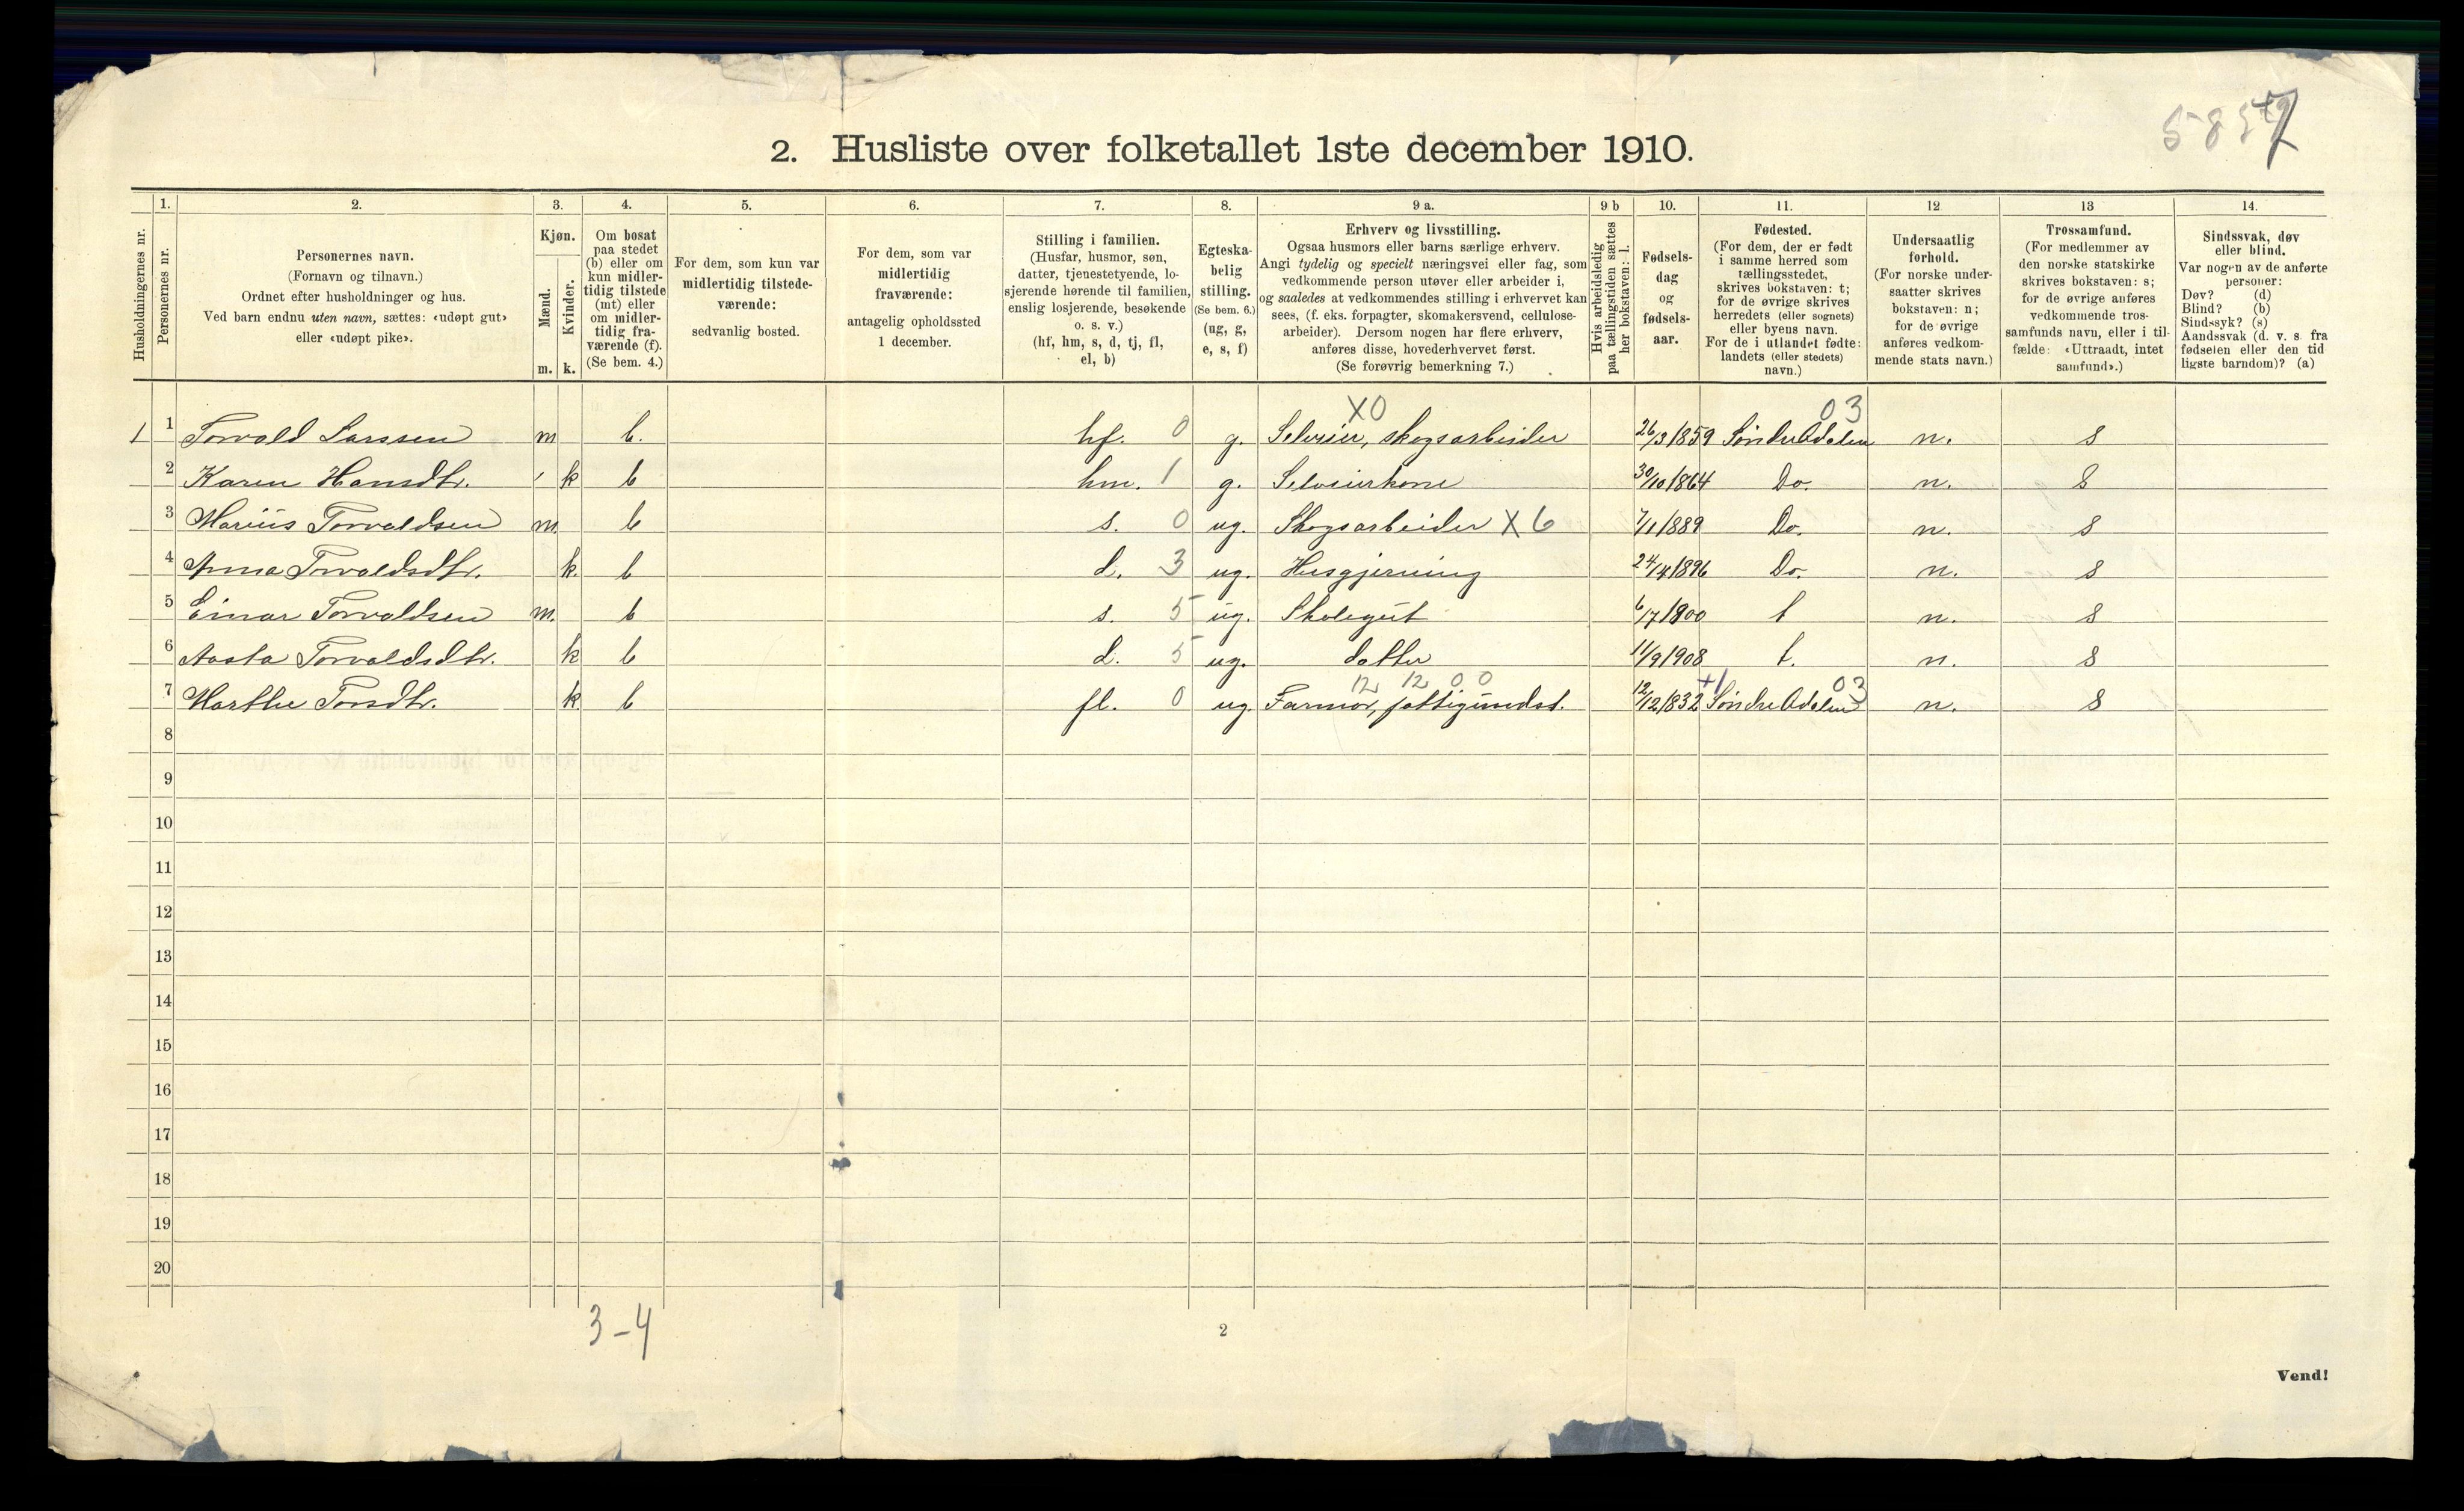 5857
2. Husliste over folketallet 1ste december 1910.
Husholdningernes nr.
1. Personernes nr.
2. Personernes navn.
(Fornavn og tilnavn.)
Ordnet efter husholdninger og hus.
Ved barn endnu uten navn, sættes: «udøpt gut»
eller «udøpt pike».
3. Kjøn.
Mænd. m.
Kvinder. k.
4. Om bosat
paa stedet
(b) eller om
kun midler-
tidig tilstede
(mt) eller
om midler-
tidig fra-
værende (f).
(Se bem. 4.)
5. For dem, som kun var
midlertidig tilstede-
værende:
sedvanlig bosted.
6. For dem, som var
midlertidig
fraværende:
antagelig opholdssted
1 december.
7. Stilling i familien.
(Husfar, husmor, søn,
datter, tjenestetyende, lo-
sjerende hørende til familien,
enslig losjerende, besøkende
o. s. v.)
(hf, hm, s, d, tj, fl,
el, b)
8. Egteska-
belig
stilling.
(Se bem. 6.)
(ug, g,
e, s, f)
9 a. Erhverv og livsstilling.
Ogsaa husmors eller barns særlige erhverv.
Angi tydelig og specielt næringsvei eller fag, som
vedkommende person utøver eller arbeider i,
og saaledes at vedkommendes stilling i erhvervet kan
sees, (f. eks. forpagter, skomakersvend, cellulose-
arbeider). Dersom nogen har flere erhverv,
anføres disse, hovederhvervet først.
(Se forøvrig bemerkning 7.)
9 b Hvis arbeidsledig
paa tællingstiden sættes
her bokstaven: l.
10. Fødsels-
dag
og
fødsels-
aar.
11. Fødested.
(For dem, der er født
i samme herred som
tællingsstedet,
skrives bokstaven: t;
for de øvrige skrives
herredets (eller sognets)
eller byens navn.
For de i utlandet fødte:
landets (eller stedets)
navn.)
12 Undersaatlig
forhold.
(For norske under-
saatter skrives
bokstaven: n;
for de øvrige
anføres vedkom-
mende stats navn.)
13 Trossamfund.
(For medlemmer av
den norske statskirke
skrives bokstaven: s;
for de øvrige anføres
vedkommende tros-
samfunds navn, eller i til-
fælde: «Uttraadt, intet
samfund».)
14. Sindssvak, døv
eller blind.
Var nogen av de anførte
personer:
Døv? (d)
Blind? (b)
Sindssyk? (s)
Aandssvak (d. v. s. fra
fødselen eller den tid
ligste barndom)? (a)
X0 03
1 1 Torvald Larssen m b. hf. 0 g. Selveier, skogsarbeider 26/3 1859 Søndre Adalen n. s
2 Karen Hansdtr. k b hm. 1 g. Selveierkone 30/10 1864 Do. n. s
3 Marius Torvaldsen m. b s. 0 ug. Skogsarbeider X6 7/1 1889 Do. n. s
4 Anna Torvaldsdtr. k. b d. 3 ug. Husgjerning 24/4 1896 Do. n. s
5 Einar Torvaldsen m. b s. 5 ug. Skolegut 6/7 1900 t n. s
6 Aasta Torvaldsdtr. k b d. 5 ug. datter 11/9 1908 t. n. s
12 12 0 0 +1 03
7 Marthe Torsdtr. k b fl. 0 ug. Farmor, fattigunderst. 12/12 1832 Søndre Adalen n. s
8
9
10
11
12
13
14
15
16
17
18
19
20
3-4
2
Vend!